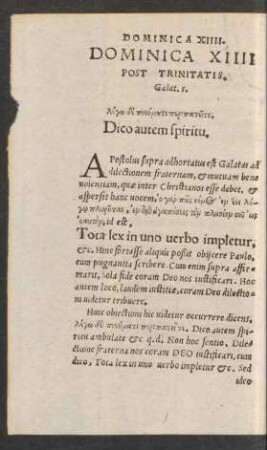 DOMINICA XIIII.
DOMINICA XIIII
POST TRINITATIS.
Galat. 5.
λέγω δὲ πνεύματι περιπατεῖτε.
Dico autem spiritu.
APostolus supra adhortatus est Galatas ad
dilectionem fraternam, & mutuam bene
uolentiam, quæ inter Christianos esse debet, &
aspersit hanc uocem, ὁ γὰρ πᾶς νόμος ἐν ἑνὶ λό-
γῳ πληροῦται, ἐν τῷ ἀγαπήσεις τὸν πλησίον σου ὡς
ἑαυτόν, id est,
Tota lex in uno uerbo impletur,
&c. Hinc fortasse aliquis posset obijcere Paulo,
eum pugnantia scribere. Cum enim supra affir-
marit, sola fide coram Deo nos iustificari. Hoc
autem loco, laudem iustitiæ, coram Deo dilectio-
ni uidetur tribuere.
Huic obiectioni hic uidetur occurrere dicens,
λέγω δὲ πνεύματι περιπατεῖτε. Dico autem spi-
ritu ambulate &c. q.d. Non hoc sentio, Dile-
ctione fraterna nos coram DEO iustificari, cum
dico, Tota lex in uno uerbo impletur &c. Sed
ideo